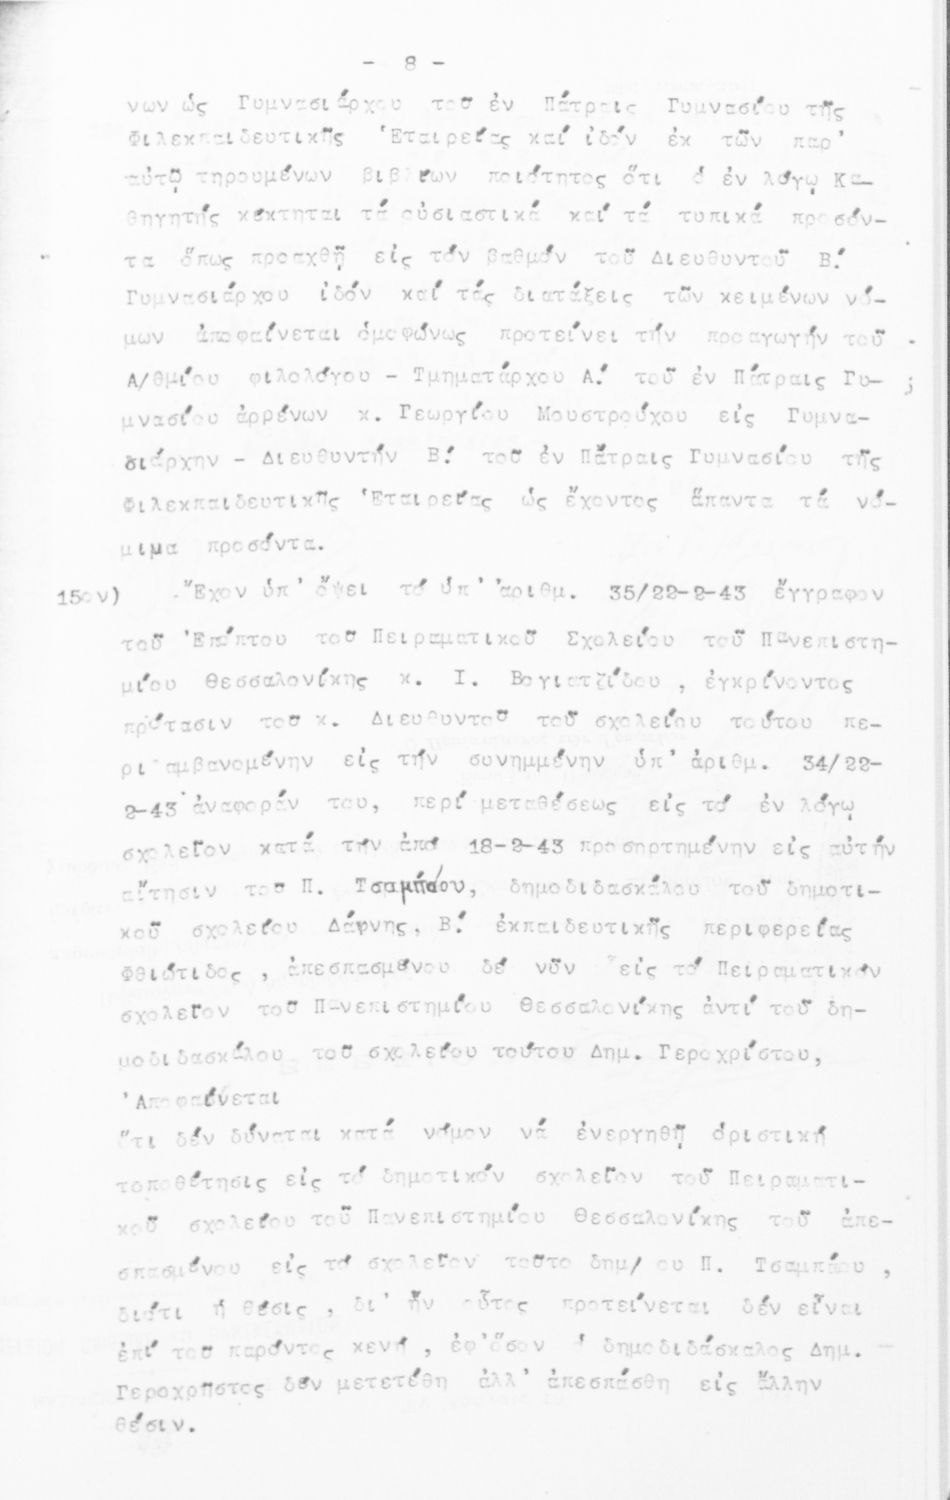 - 8 -
νων ὡς Γυμνασιάρχου τοῦ ἐν Πάτραις Γυμνασίου τῆς
Φιλεκπαιδευτικῆς Ἑταιρείας καί ἰδόν ἐκ τῶν παρ'
αὐτῷ τηρουμένων βιβλίων ποιότητος ὅτι ὁ ἐν λόγῳ Κα-
θηγητής κέκτηται τά οὐσιαστικά καί τά τυπικά προσόν-
τα ὅπως προαχθῇ εἰς τόν βαθμόν τοῦ Διευθυντοῦ Β.'
Γυμνασιάρχου ἰδόν καί τάς διατάξεις τῶν κειμένων νό-
μων ἀποφαίνεται ὁμοφώνως προτείνει τήν προαγωγήν τοῦ
Α/θμίου φιλολόγου - Τμηματάρχου Α.' τοῦ ἐν Πάτραις Γυ-
μνασίου ἀρρένων κ. Γεωργίου Μουστρούχου εἰς Γυμνα-
σιάρχην - Διευθυντήν Β.' τοῦ ἐν Πάτραις Γυμνασίου τῆς
Φιλεκπαιδευτικῆς Ἑταιρείας ὡς ἔχοντος ἅπαντα τά νό-
μιμα προσόντα.
15ον) Ἔχον ὑπ' ὄψει τό ὑπ' ἀριθμ. 35/22-2-43 ἔγγραφον
τοῦ Ἐπόπτου τοῦ Πειραματικοῦ Σχολείου τοῦ Πανεπιστη-
μίου Θεσσαλονίκης κ. Ι. Βογιατζίδου , ἐγκρίνοντος
πρότασιν τοῦ κ. Διευθυντοῦ τοῦ σχολείου τούτου πε-
ριλαμβανομένην εἰς τήν συνημμένην ὑπ' ἀριθμ. 34/22-
2-43 ἀναφοράν του, περί μεταθέσεως εἰς τό ἐν λόγῳ
σχολεῖον κατά τήν ἀπό 18-2-43 προσηρτημένην εἰς αὐτήν
αἴτησιν τοῦ Π. Τσαμπάου, δημοδιδασκάλου τοῦ δημοτι-
κοῦ σχολείου Δάφνης, Β.' ἐκπαιδευτικῆς περιφερείας
Φθιώτιδος , ἀπεσπασμένου δέ νῦν εἰς τό Πειραματικόν
σχολεῖον τοῦ Πανεπιστημίου Θεσσαλονίκης ἀντί τοῦ δη-
μοδιδασκάλου τοῦ σχολείου τούτου Δημ. Γεροχρίστου,
Ἀποφαίνεται
ὅτι δέν δύναται κατά νόμον νά ἐνεργηθῇ ὁριστική
τοποθέτησις εἰς τό δημοτικόν σχολεῖον τοῦ Πειραματι-
κοῦ σχολείου τοῦ Πανεπιστημίου Θεσσαλονίκης τοῦ ἀπε-
σπασμένου εἰς τό σχολεῖον τοῦτο δημ/ου Π. Τσαμπάου ,
διότι ἡ θέσις , δι' ἥν οὗτος προτείνεται δέν εἶναι
ἐπί τοῦ παρόντος κενή , ἐφ' ὅσον ὁ δημοδιδάσκαλος Δημ.
Γεροχρῆστος δέν μετετέθη ἀλλ' ἀπεσπάσθη εἰς ἄλλην
θέσιν.